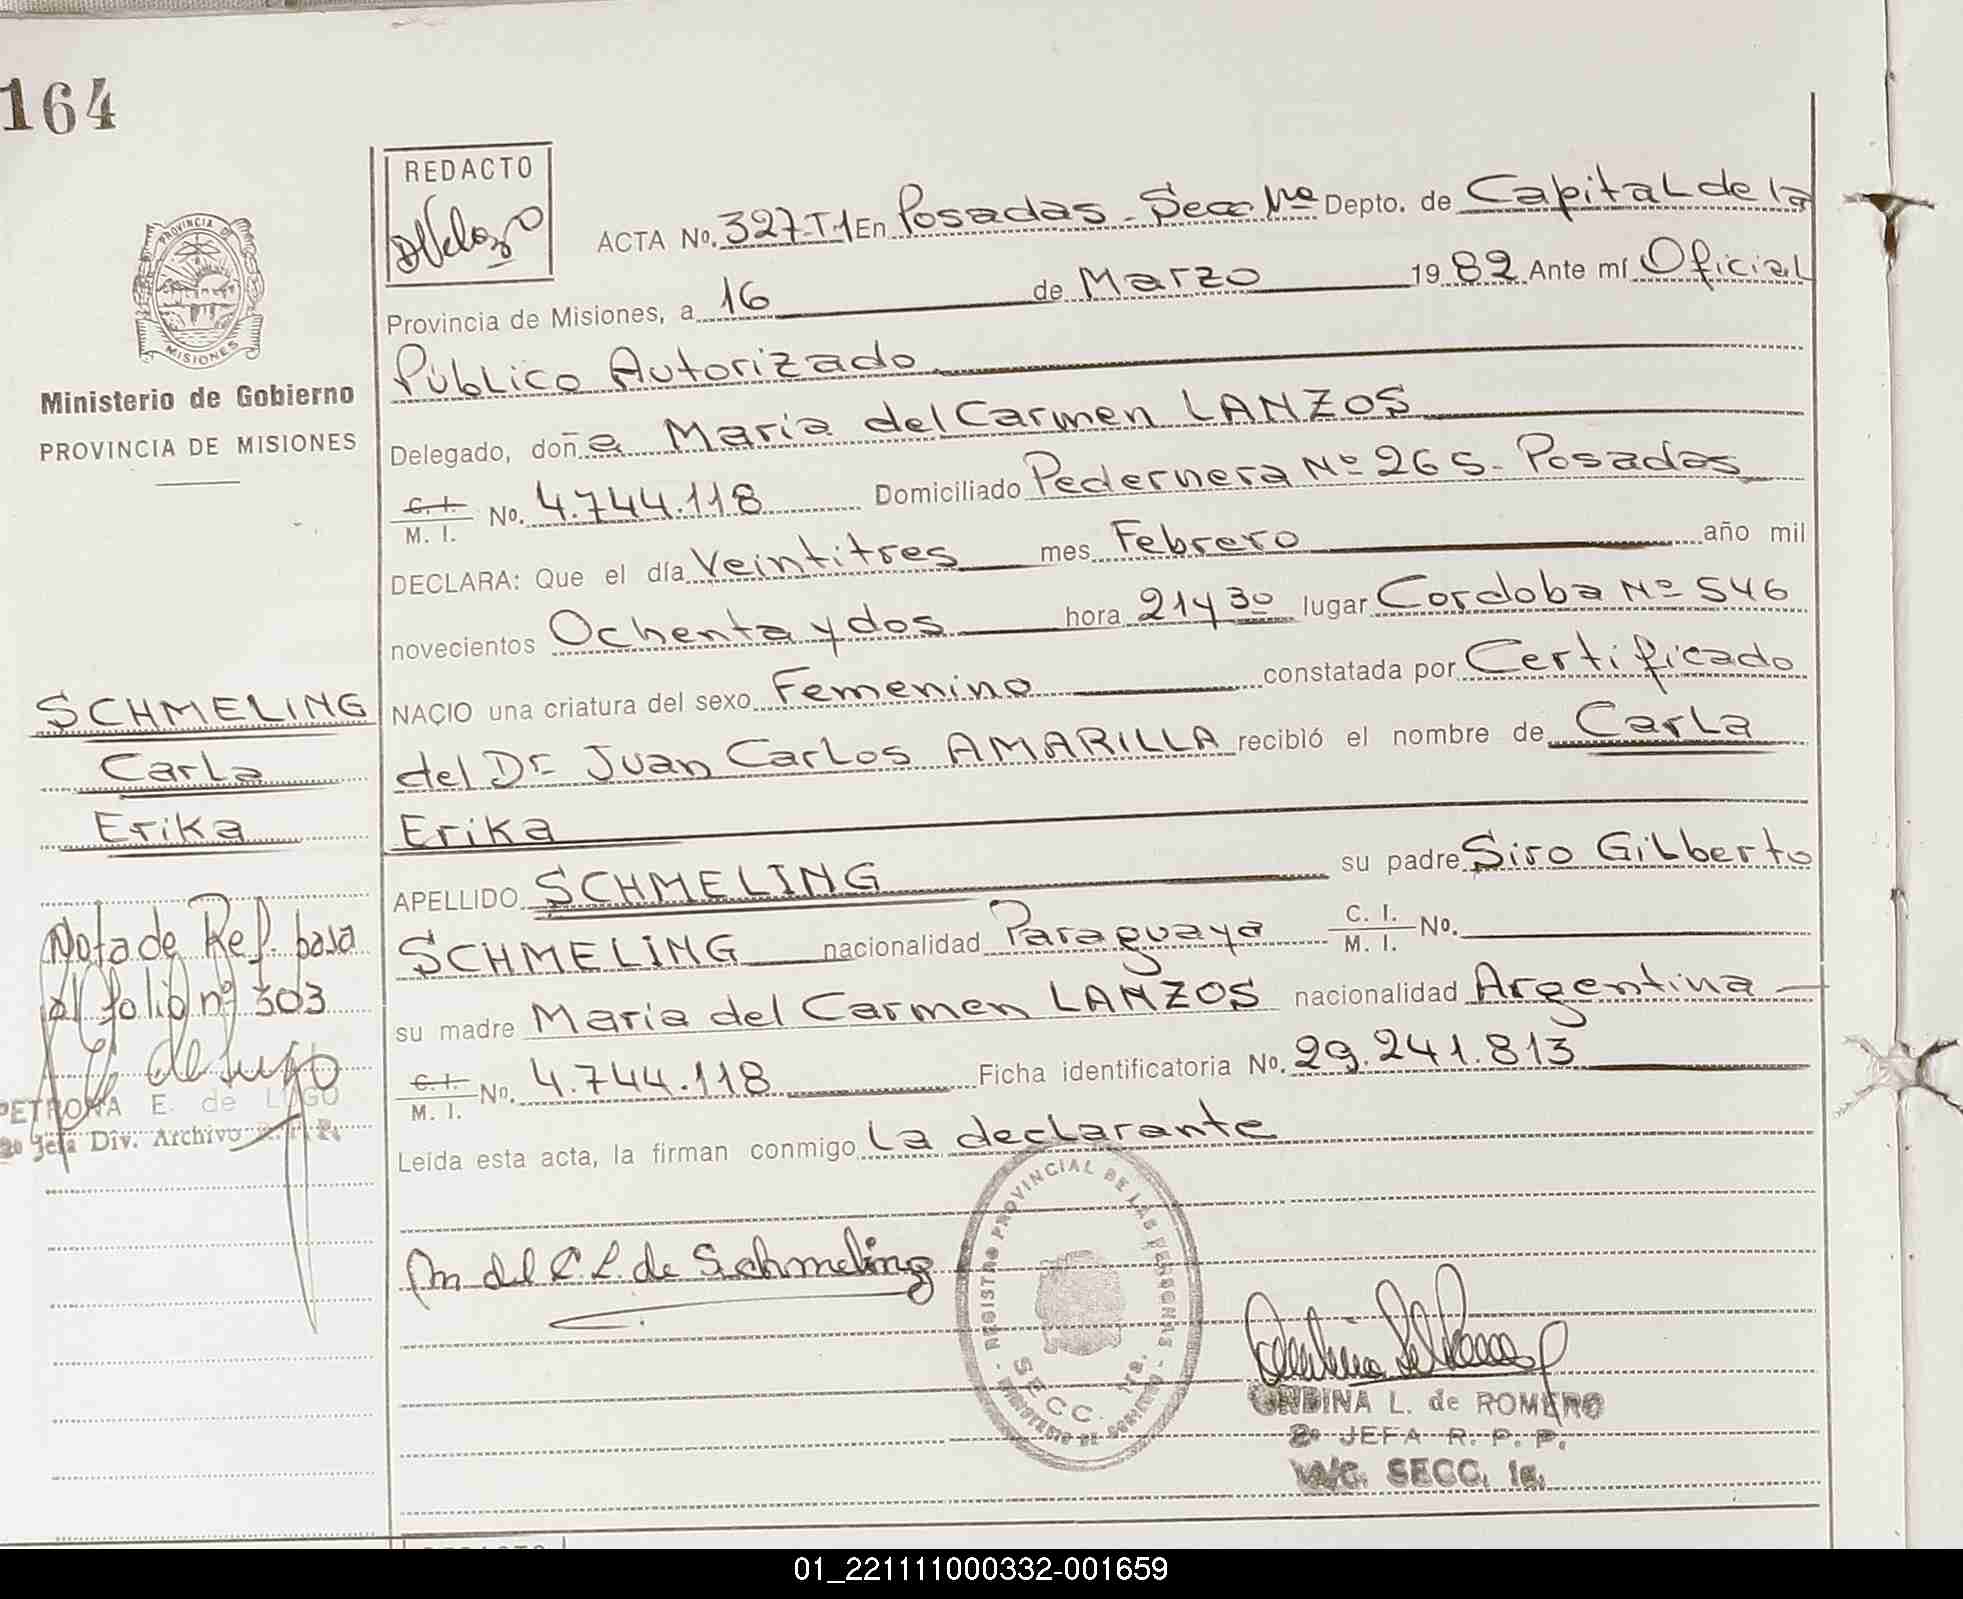 164
REDACTO
PROVINCIA DE
MISIONES
ACTA No. 327-T1 En Posadas - Secc 1ra Depto. de Capital de la
Provincia de Misiones, a 16 de Marzo 1982 Ante mí Oficial
Público Autorizado
Ministerio de Gobierno
PROVINCIA DE MISIONES
Delegado, doña Maria del Carmen LANZOS
C. I. M. I. No. 4.744.118 Domiciliado Pedernera Nº 265 - Posadas
DECLARA: Que el día Veintitres mes Febrero año mil
novecientos Ochenta y dos hora 21 y 30 lugar Cordoba Nº 546
NACIO una criatura del sexo Femenino constatada por Certificado
del Dr Juan Carlos AMARILLA recibió el nombre de Carla
Erika
APELLIDO SCHMELING su padre Siro Gilberto
SCHMELING nacionalidad Paraguaya C. I. M. I. No.
su madre Maria del Carmen LANZOS nacionalidad Argentina
C. I. M. I. No. 4.744.118 Ficha identificatoria No. 29.241.813
Leída esta acta, la firman conmigo La declarante
SCHMELING
Carla
Erika
Nota de Ref. pasa
al folio nº 303
de Lugo
PETRONA E. de LUGO
2º Jefa Div. Archivo R. P. P.
M del C. L. de Schmeling
REGISTRO PROVINCIAL DE LAS PERSONAS - MINISTERIO DE GOBIERNO -
SECC. 1ra.
ONDINA L. de ROMERO
2º JEFA R. P. P.
SECC. 1a.
01_221111000332-001659